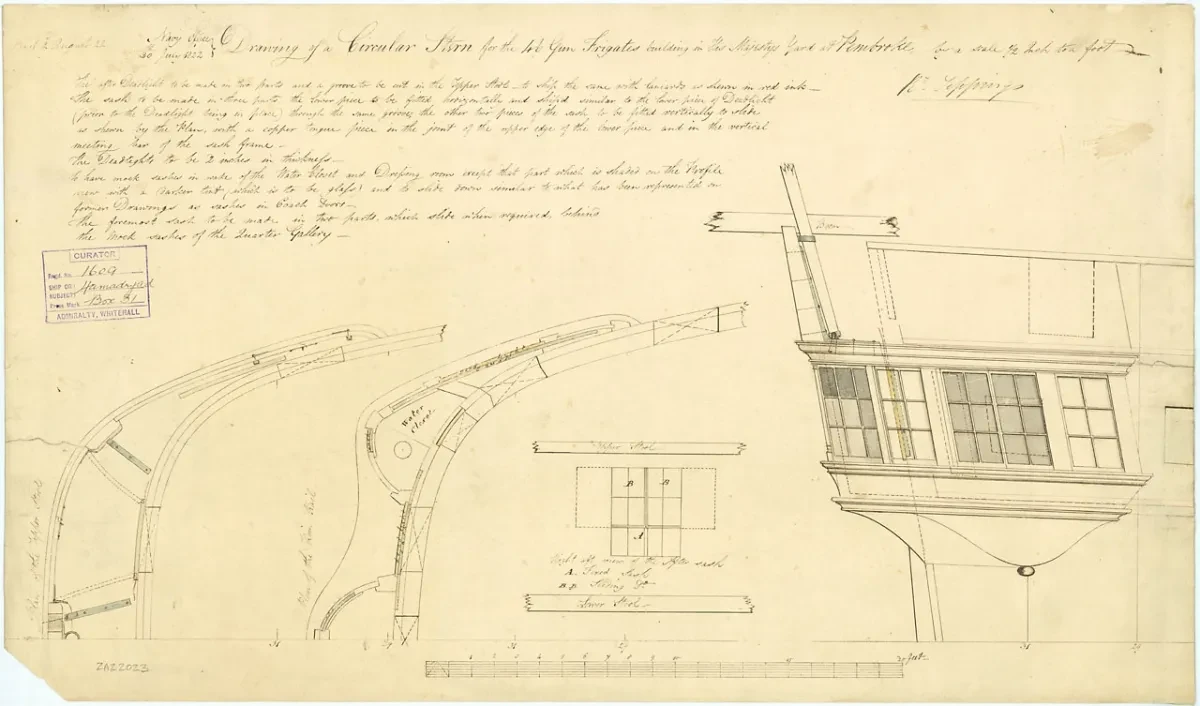 Navy Office
20th June 1822
Drawing of a Circular Stern for the 46 Gun Frigates building in His Majestys Yard at Pembroke, by a scale 1/2 Inch to a foot
Rt Seppings
The after Deadlight to be made in two parts and a groove to be cut in the Upper Stool to ship the same with lanyards as shewn in red ink
The sash to be made in three parts, the lower piece to be fitted horizontally and shiped similar to the lower piece of Deadlight
(prior to the Deadlight being in place) through the same groove, the other two pieces of the sash to be fitted vertically to slide
as shewn by the Plan, with a copper tongue piece in the joint of the upper edge of the lower piece and in the vertical
meeting bar of the sash frame
The Deadlights to be 2 inches in thickness
To have mock sashes in wake of the Water Closet and Dressing room except that part which is shaded on the Profile
view with a darker tint (which is to be glass) and to slide down similar to what has been represented on
former Drawings as sashes in Coach doors
The foremost sash to be made in two parts, which slide when required behind
the mock sashes of the Quarter Gallery
CURATOR
Regd. No. 1609
SHIP OR SUBJECT Hamadryad
Press Mark Box 31
ADMIRALTY, WHITEHALL
Beam
Water Closet
Plan of the Upper Stool
Plan of the Rim Rail
Upper Stool
B B
A
view of the After sash
A. Fixed Sash
B.B. Sliding Do
Lower Stool
ZAZ2023
20 feet